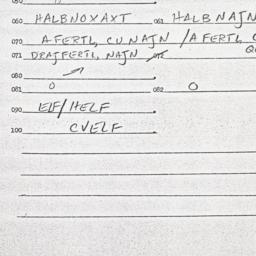 060 HALBNOXAXT 061 HALBNAJN
070 AFERTL, CUNAJN / AFERTL
071 DRAJFERTL, NAJN 072
080
081 0 082 0
090 ELF/HELF
100 CVELF